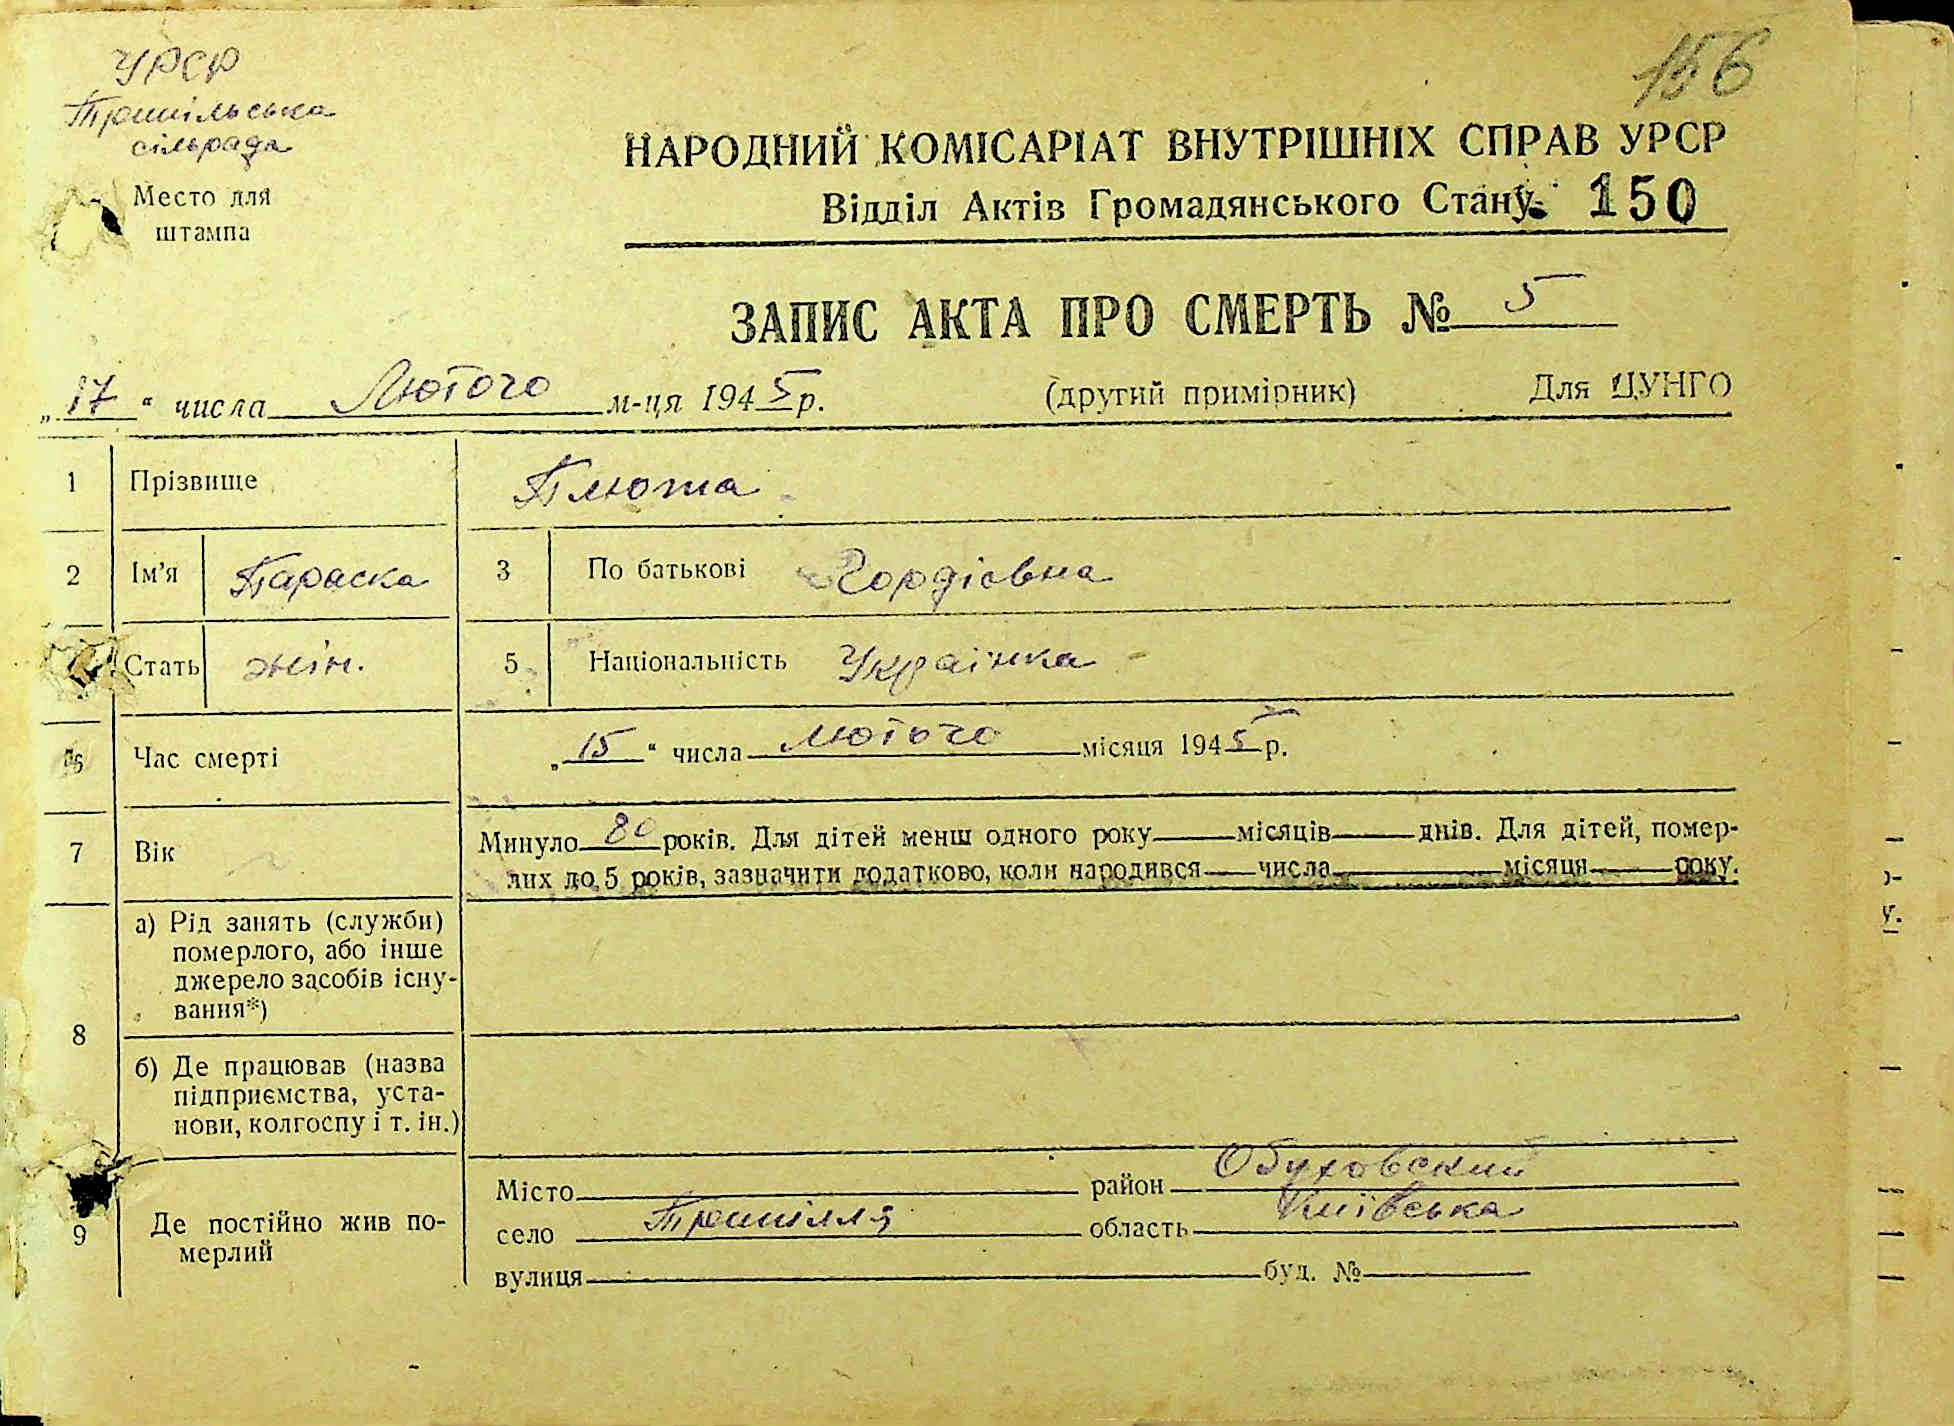 156
УРСР
Трипільська
сільрада
Место для
штампа
НАРОДНИЙ КОМІСАРІАТ ВНУТРІШНІХ СПРАВ УРСР
Відділ Актів Громадянського Стану. 150
ЗАПИС АКТА ПРО СМЕРТЬ № 5
„17“ числа Лютого м-ця 1945 р. (другий примірник) Для ЦУНГО
1 Прізвище Плюта
2 Ім’я Параска 3 По батькові Гордієвна
Стать жін. 5 Національність Українка
6 Час смерті „15“ числа Лютого місяця 1945 р.
7 Вік Минуло 80 років. Для дітей менш одного року — місяців — днів. Для дітей, помер-
лих до 5 років, зазначити додатково, коли народився — числа — місяця — року.
8 а) Рід занять (служби)
померлого, або інше
джерело засобів існу-
вання*)
б) Де працював (назва
підприємства, уста-
нови, колгоспу і т. ін.)
9 Де постійно жив по-
мерлий
Місто район Обуховский
село Трипілля область Київська
вулиця буд. №